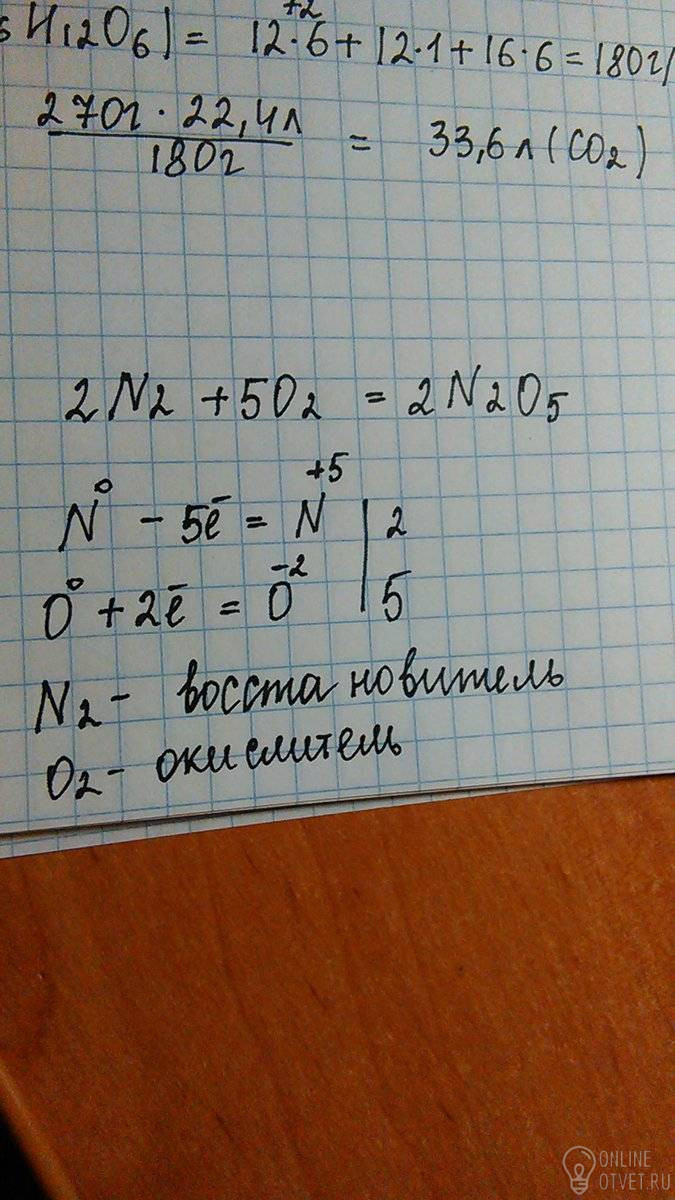 H12O6) = 12·6 + 12·1 + 16·6 = 180г/
+2
270г · 22,4л / 180г = 33,6л (CO2)
2N2 + 5O2 = 2N2O5
N⁰ - 5ē = N⁺⁵ | 2
O⁰ + 2ē = O⁻² | 5
N2 - восстановитель
O2 - окислитель
ONLINE
OTVET.RU